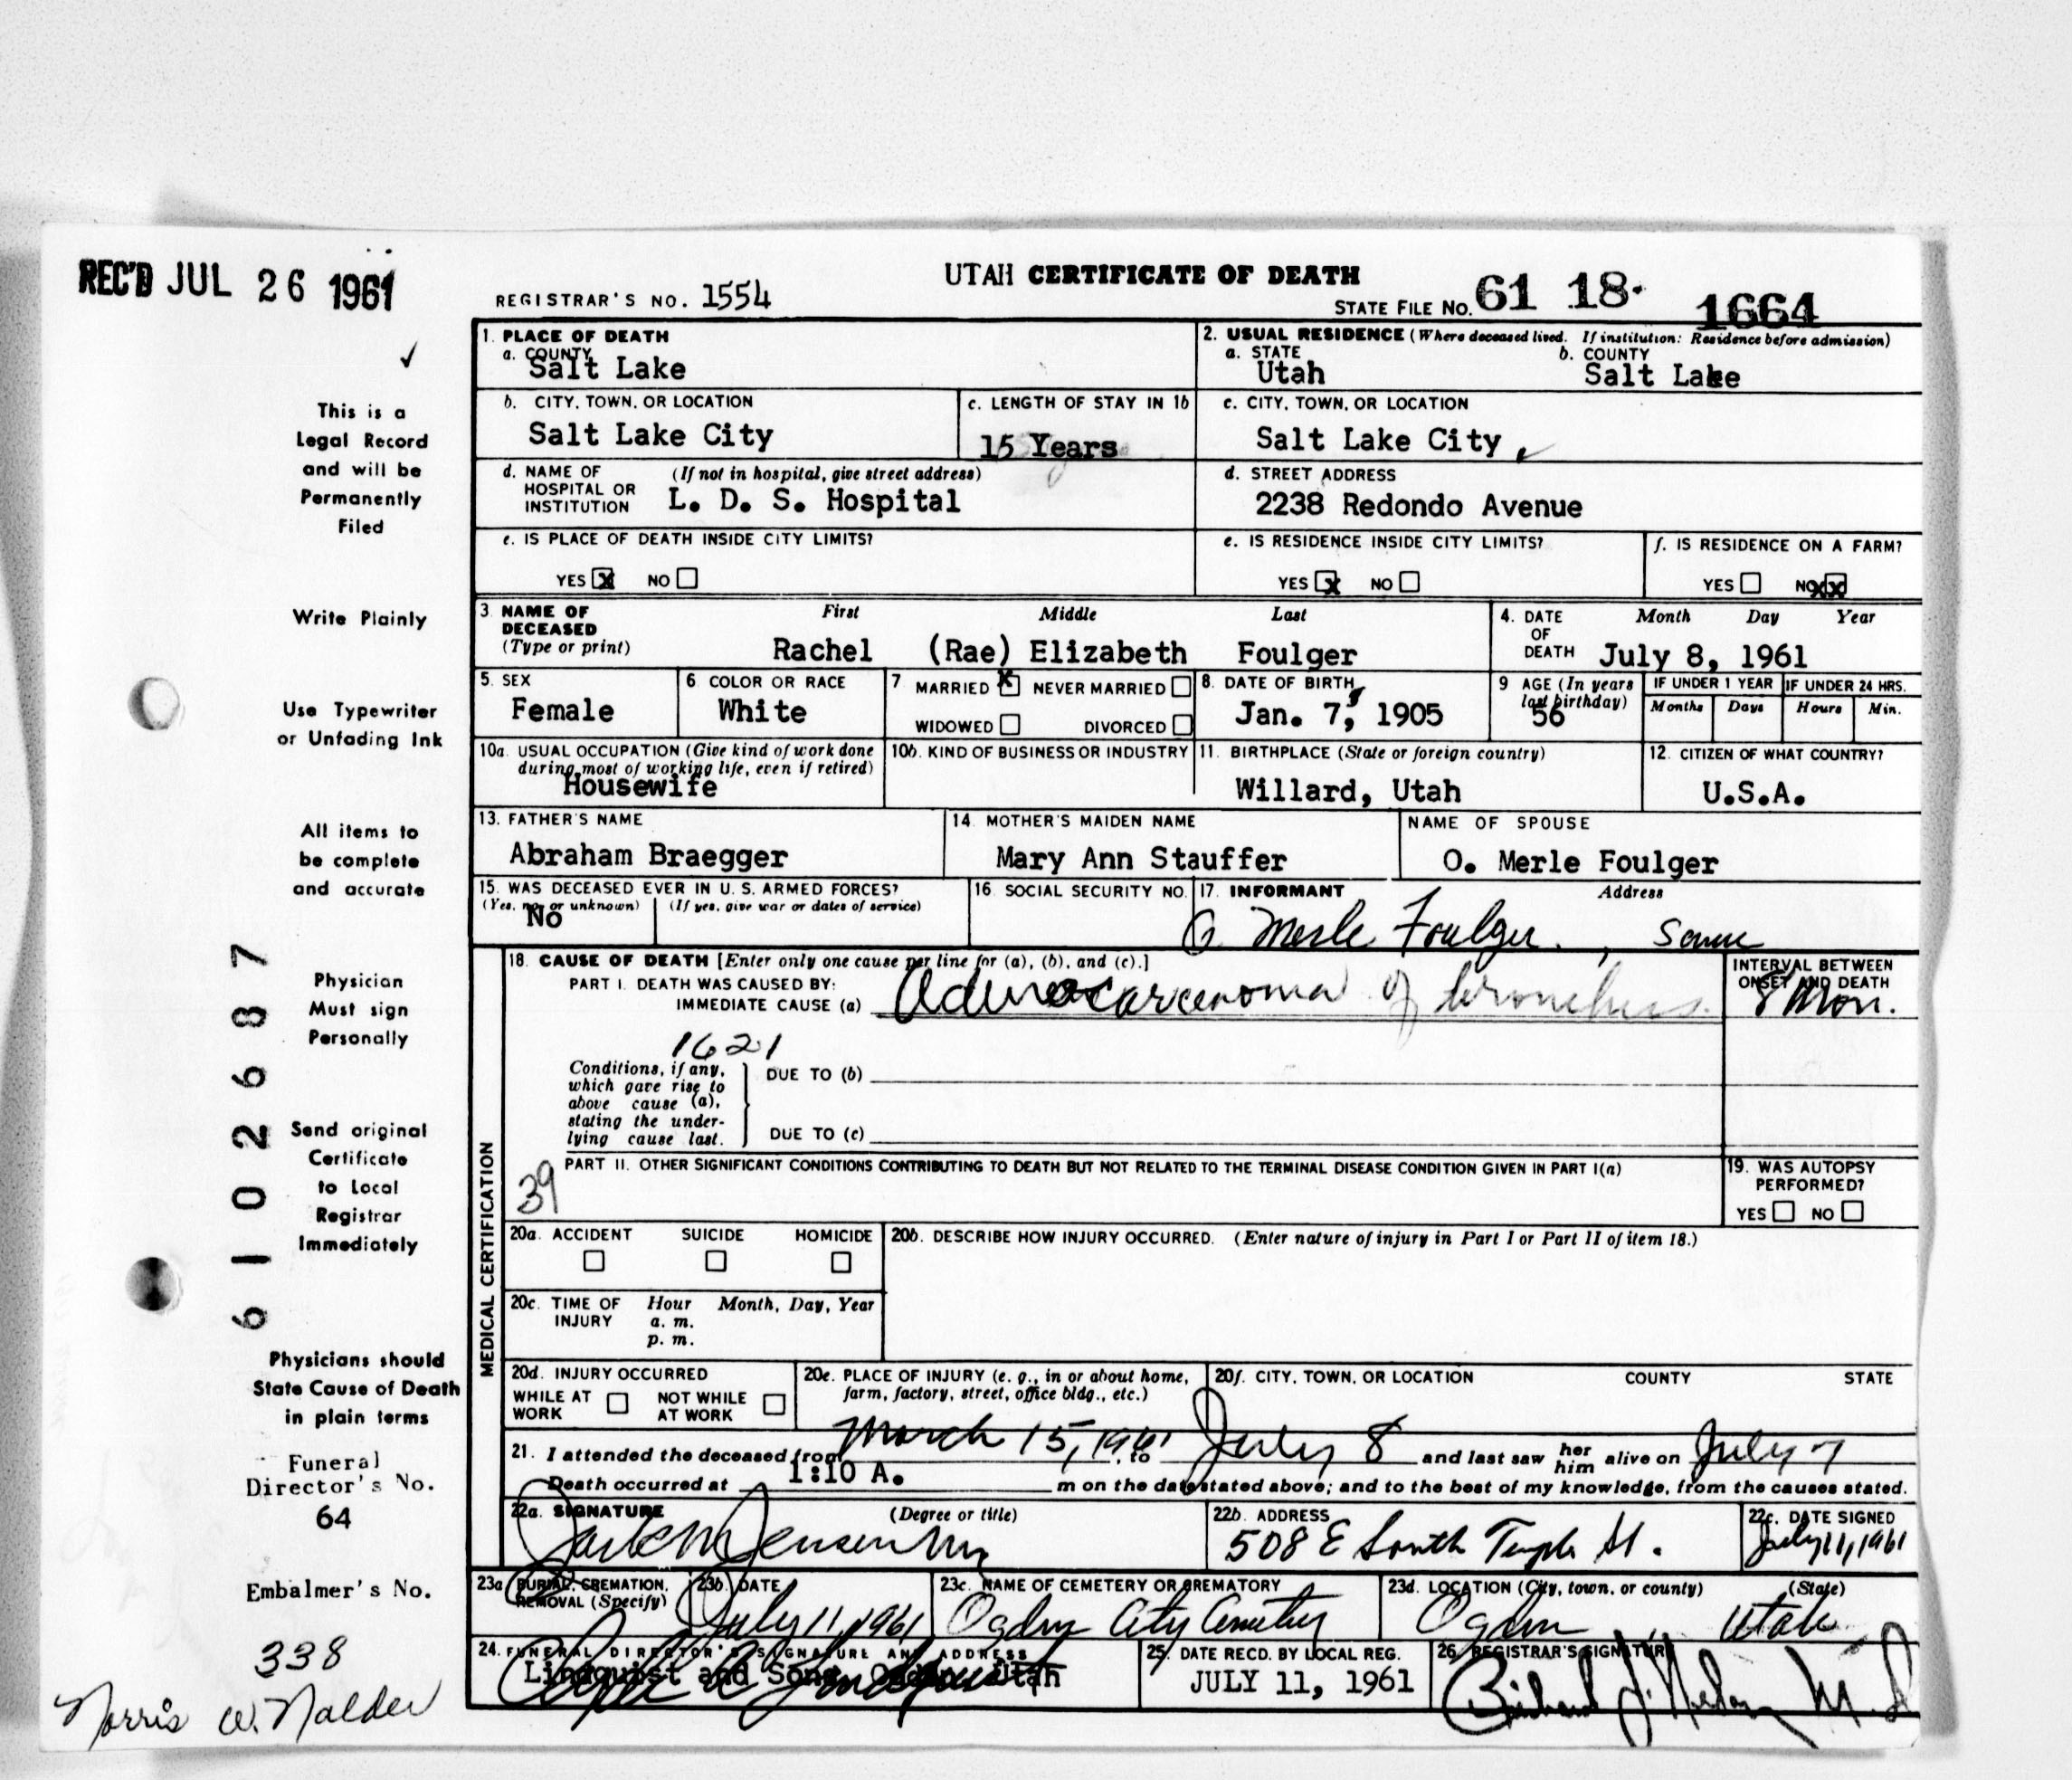 REC'D JUL 26 1961
UTAH CERTIFICATE OF DEATH
REGISTRAR'S NO. 1554
STATE FILE No. 61 18· 1664
✓
This is a
Legal Record
and will be
Permanently
Filed
Write Plainly
Use Typewriter
or Unfading Ink
All items to
be complete
and accurate
Physician
Must sign
Personally
Send original
Certificate
to Local
Registrar
Immediately
Physicians should
State Cause of Death
in plain terms
Funeral
Director's No.
64
Embalmer's No.
338
Norris W. Nalder
61 02687
1. PLACE OF DEATH
a. COUNTY
Salt Lake
2. USUAL RESIDENCE (Where deceased lived. If institution: Residence before admission)
a. STATE b. COUNTY
Utah Salt Lake
b. CITY, TOWN, OR LOCATION
Salt Lake City
c. LENGTH OF STAY IN 1b
15 Years
c. CITY, TOWN, OR LOCATION
Salt Lake City
d. NAME OF (If not in hospital, give street address)
HOSPITAL OR
INSTITUTION L. D. S. Hospital
d. STREET ADDRESS
2238 Redondo Avenue
e. IS PLACE OF DEATH INSIDE CITY LIMITS?
YES X NO
e. IS RESIDENCE INSIDE CITY LIMITS?
YES X NO
f. IS RESIDENCE ON A FARM?
YES NO XX
3. NAME OF First Middle Last
DECEASED
(Type or print) Rachel (Rae) Elizabeth Foulger
4. DATE Month Day Year
OF
DEATH July 8, 1961
5. SEX
Female
6 COLOR OR RACE
White
7 MARRIED X NEVER MARRIED
WIDOWED DIVORCED
8. DATE OF BIRTH
Jan. 7, 1905
9 AGE (In years
last birthday)
56
IF UNDER 1 YEAR IF UNDER 24 HRS.
Months Days Hours Min.
10a. USUAL OCCUPATION (Give kind of work done
during most of working life, even if retired)
Housewife
10b. KIND OF BUSINESS OR INDUSTRY
11. BIRTHPLACE (State or foreign country)
Willard, Utah
12. CITIZEN OF WHAT COUNTRY?
U.S.A.
13. FATHER'S NAME
Abraham Braegger
14. MOTHER'S MAIDEN NAME
Mary Ann Stauffer
NAME OF SPOUSE
O. Merle Foulger
15. WAS DECEASED EVER IN U. S. ARMED FORCES?
(Yes, no, or unknown) (If yes, give war or dates of service)
No
16. SOCIAL SECURITY NO.
17. INFORMANT Address
O. Merle Foulger, Same
MEDICAL CERTIFICATION
18. CAUSE OF DEATH [Enter only one cause per line for (a), (b), and (c).]
PART I. DEATH WAS CAUSED BY:
IMMEDIATE CAUSE (a) Adenocarcenoma of bronchus
INTERVAL BETWEEN
ONSET AND DEATH
8 Mon.
1621
Conditions, if any,
which gave rise to
above cause (a),
stating the under-
lying cause last.
DUE TO (b)
DUE TO (c)
PART II. OTHER SIGNIFICANT CONDITIONS CONTRIBUTING TO DEATH BUT NOT RELATED TO THE TERMINAL DISEASE CONDITION GIVEN IN PART I(a)
39
19. WAS AUTOPSY
PERFORMED?
YES NO
20a. ACCIDENT SUICIDE HOMICIDE
20b. DESCRIBE HOW INJURY OCCURRED. (Enter nature of injury in Part I or Part II of item 18.)
20c. TIME OF Hour Month, Day, Year
INJURY a. m.
p. m.
20d. INJURY OCCURRED
WHILE AT NOT WHILE
WORK AT WORK
20e. PLACE OF INJURY (e. g., in or about home,
farm, factory, street, office bldg., etc.)
20f. CITY, TOWN, OR LOCATION COUNTY STATE
21. I attended the deceased from March 15, 1961 to July 8 and last saw her him alive on July 7
Death occurred at 1:10 A. m on the date stated above; and to the best of my knowledge, from the causes stated.
22a. SIGNATURE (Degree or title)
Jensen MD
22b. ADDRESS
508 E South Temple St.
22c. DATE SIGNED
July 11, 1961
23a BURIAL, CREMATION,
REMOVAL (Specify)
23b. DATE
July 11, 1961
23c. NAME OF CEMETERY OR CREMATORY
Ogden City Cemetery
23d. LOCATION (City, town, or county) (State)
Ogden, Utah
24. FUNERAL DIRECTOR'S SIGNATURE AND ADDRESS
Lindquist and Sons, Ogden, Utah
25. DATE RECD. BY LOCAL REG.
JULY 11, 1961
26. REGISTRAR'S SIGNATURE